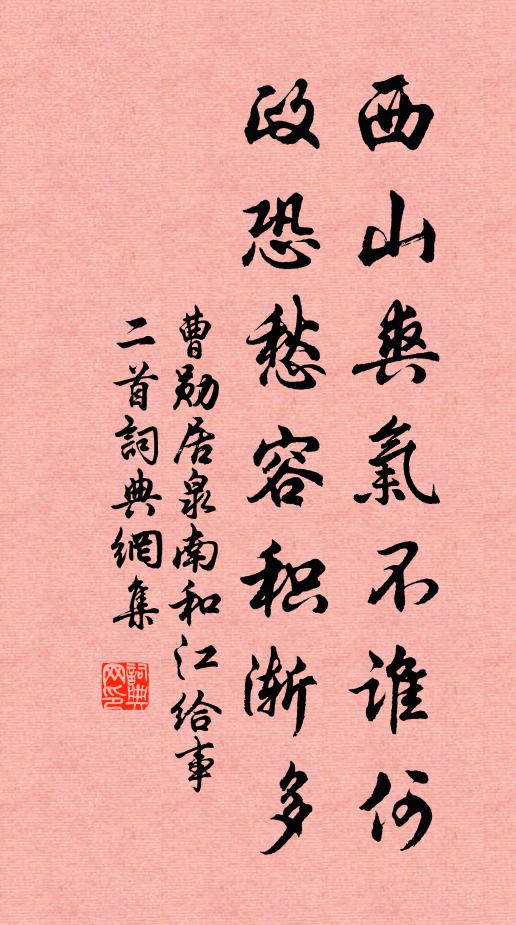 西山爽氣不誰何
政恐愁容积漸多
曹勛居泉南和江给事
二首詞典網集
詞典网印